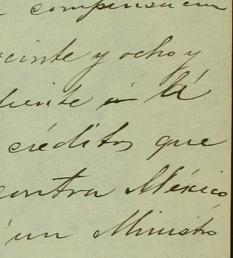 compensacion
veinte y ocho y
diente á la
créditos que
contra México
un Ministro